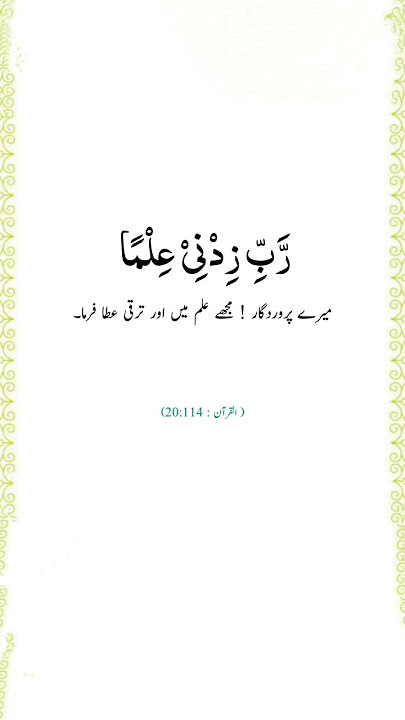 رَّبِّ زِدْنِیْ عِلْمًا
میرے پروردگار ! مجھے علم میں اور ترقی عطا فرما۔
( القرآن : 20:114)